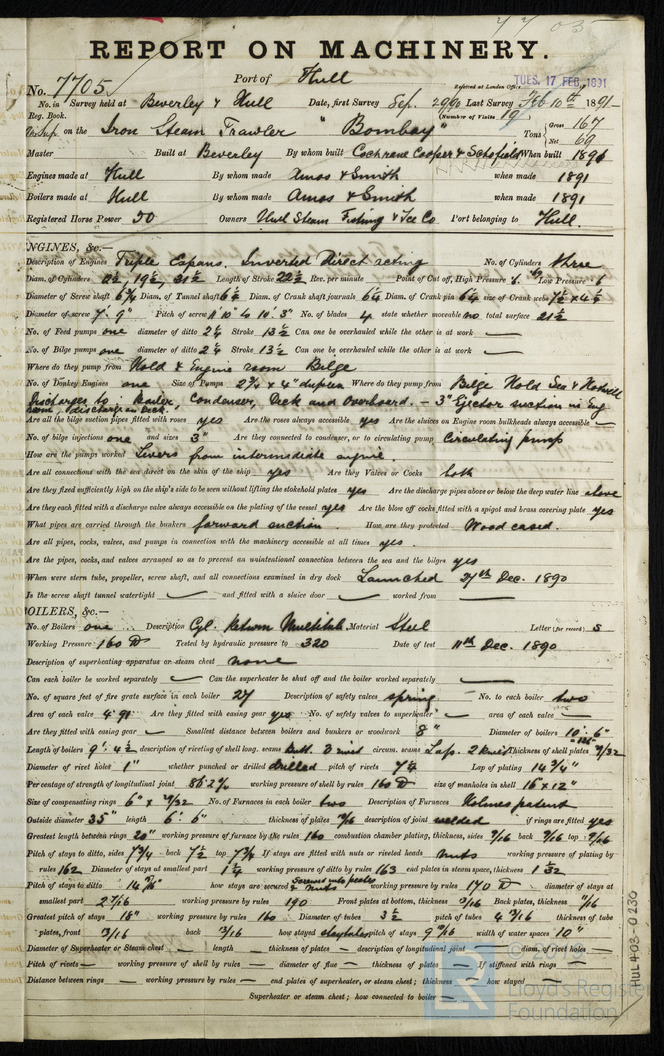 REPORT ON MACHINERY.
No. 7705 Port of Hull
Referred at London Office TUES. 17 FEB 1891
No. in Survey held at Beverley & Hull Date, first Survey Sep. 29 90 Last Survey Feb 10th 1891
Reg. Book. (Number of Visits 19)
on the Iron Steam Trawler "Bombay" Tons Gross 167 Net 69
Master Built at Beverley By whom built Cochrane Cooper & Schofield When built 1890
Engines made at Hull By whom made Amos & Smith when made 1891
Boilers made at Hull By whom made Amos & Smith when made 1891
Registered Horse Power 50 Owners Hull Steam Fishing & Ice Co Port belonging to Hull.
NGINES, &c.—
Description of Engines Triple Expans. Inverted Direct acting No. of Cylinders three
Diam. of Cylinders 19½, 31½ Length of Stroke 22½ Rev. per minute Point of Cut off, High Pressure Low Pressure
Diameter of Screw shaft 6¼ Diam. of Tunnel shaft Diam. of Crank shaft journals 6¼ Diam. of Crank pin 6¼ size of Crank webs
Diameter of screw 7'. 9" Pitch of screw 10'. 3" No. of blades 4 state whether moveable no total surface 21½
No. of Feed pumps one diameter of ditto 2¼ Stroke 13½ Can one be overhauled while the other is at work —
No. of Bilge pumps one diameter of ditto 2¼ Stroke 13½ Can one be overhauled while the other is at work —
Where do they pump from Hold & Engine room Bilge
No. of Donkey Engines one Size of Pumps 2¾ x 4" duplex Where do they pump from Bilge Hold Sea & Hotwell
Discharges to: Boiler, Condenser, Deck and Overboard. — 3" Ejector suction in Eng
room, discharge on Deck.
Are all the bilge suction pipes fitted with roses yes Are the roses always accessible yes Are the sluices on Engine room bulkheads always accessible —
No. of bilge injections one and sizes 3" Are they connected to condenser, or to circulating pump Circulating pump
How are the pumps worked Levers from intermediate engine.
Are all connections with the sea direct on the skin of the ship yes Are they Valves or Cocks both
Are they fixed sufficiently high on the ship's side to be seen without lifting the stokehold plates yes Are the discharge pipes above or below the deep water line above
Are they each fitted with a discharge valve always accessible on the plating of the vessel yes Are the blow off cocks fitted with a spigot and brass covering plate yes
What pipes are carried through the bunkers forward suction. How are they protected Wood cased.
Are all pipes, cocks, valves, and pumps in connection with the machinery accessible at all times yes.
Are the pipes, cocks, and valves arranged so as to prevent an unintentional connection between the sea and the bilges yes
When were stern tube, propeller, screw shaft, and all connections examined in dry dock Launched 27th Dec. 1890
Is the screw shaft tunnel watertight — and fitted with a sluice door — worked from —
OILERS, &c.—
No. of Boilers one Description Cyl. Return Multitub. Material Steel Letter (for record) S
Working Pressure 160 lb Tested by hydraulic pressure to 320 Date of test 11th Dec. 1890
Description of superheating apparatus or steam chest none
Can each boiler be worked separately — Can the superheater be shut off and the boiler worked separately —
No. of square feet of fire grate surface in each boiler 27 Description of safety valves spring No. to each boiler two
Area of each valve 4.91 Are they fitted with easing gear yes No. of safety valves to superheater — area of each valve —
Are they fitted with easing gear — Smallest distance between boilers and bunkers or woodwork 8" Diameter of boilers 10'. 6"
Length of boilers 9'. 4½ description of riveting of shell long. seams Butt. circum. seams Lap. Thickness of shell plates
Diameter of rivet holes 1" whether punched or drilled drilled pitch of rivets Lap of plating 14¾"
Percentage of strength of longitudinal joint working pressure of shell by rules 160 lb size of manholes in shell 16"x12"
Size of compensating rings No. of Furnaces in each boiler two Description of Furnaces Holmes patent
Outside diameter 35" length 6'. 6" thickness of plates 7/16 description of joint welded if rings are fitted yes
Greatest length between rings 20" working pressure of furnace by the rules 160 combustion chamber plating, thickness, sides 7/16 back 7/16 top 7/16
Pitch of stays to ditto, sides 7¾ back 7½ top 7¾ If stays are fitted with nuts or riveted heads nuts working pressure of plating by
rules 162 Diameter of stays at smallest part 1¼ working pressure of ditto by rules 163 end plates in steam space, thickness
Pitch of stays to ditto how stays are secured Screwed into plates & nuts working pressure by rules 170 lb diameter of stays at
smallest part 2 7/16 working pressure by rules 190 Front plates at bottom, thickness Back plates, thickness
Greatest pitch of stays 16" working pressure by rules 160 Diameter of tubes 3½ pitch of tubes 4 3/16 thickness of tube
plates, front back how stayed pitch of stays width of water spaces 10"
Diameter of Superheater or Steam chest — length — thickness of plates — description of longitudinal joint — diam. of rivet holes —
Pitch of rivets — working pressure of shell by rules — diameter of flue — thickness of plates — If stiffened with rings —
Distance between rings — working pressure by rules — end plates of superheater, or steam chest; thickness — how stayed —
Superheater or steam chest; how connected to boiler —
HUL403-0230
Lloyd's Register
Foundation